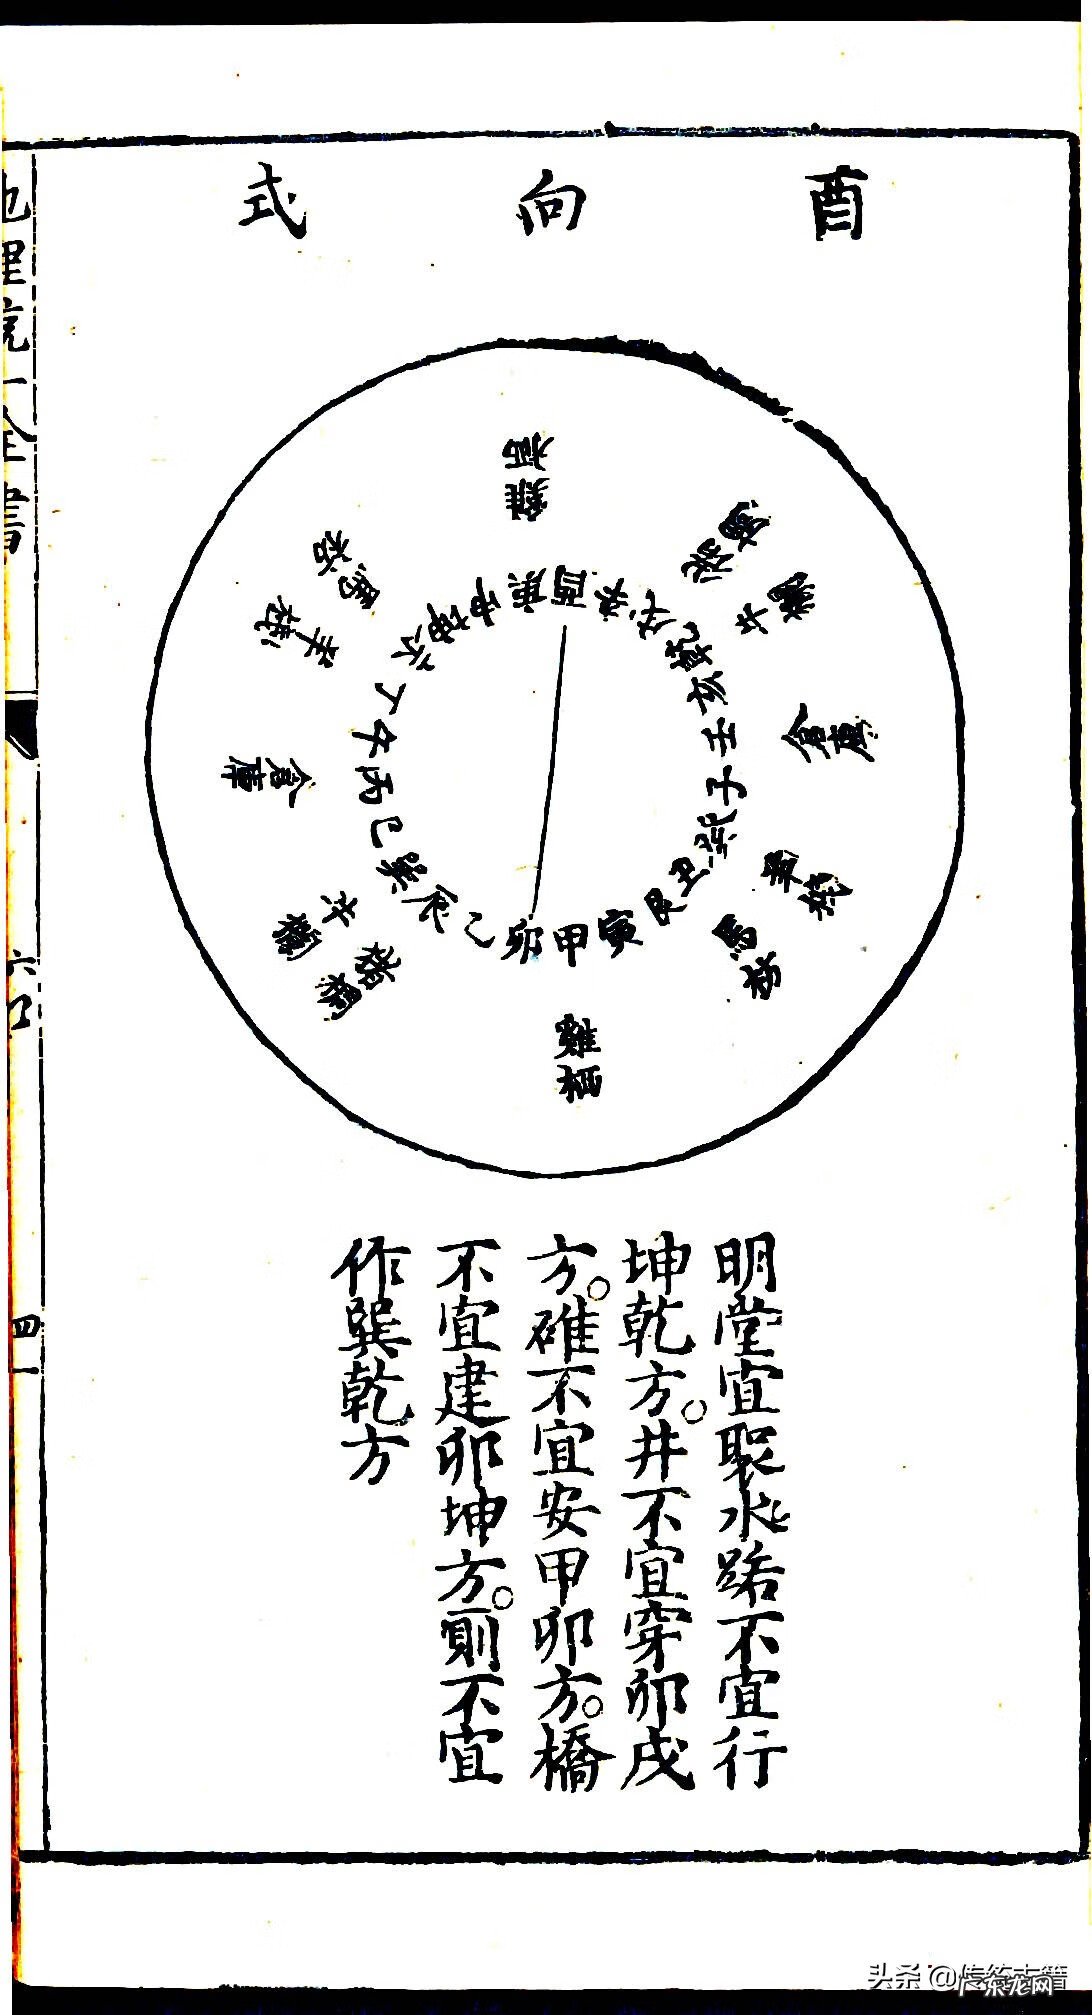 酉向式
雞栖
猪欄
牛欄
倉庫
羊棧
馬枋
雞栖
猪欄
牛欄
倉庫
羊棧
馬枋
酉辛戌乾亥壬子癸丑艮寅甲卯乙辰巽巳丙午丁未坤申庚
明堂宜聚水路不宜行
坤乾方。井不宜穿卯戌
方。碓不宜安甲卯方。橋
不宜建卯坤方。厠不宜
作巽乾方
地理統一全書
四一
头条 @传统古籍
广东龙网